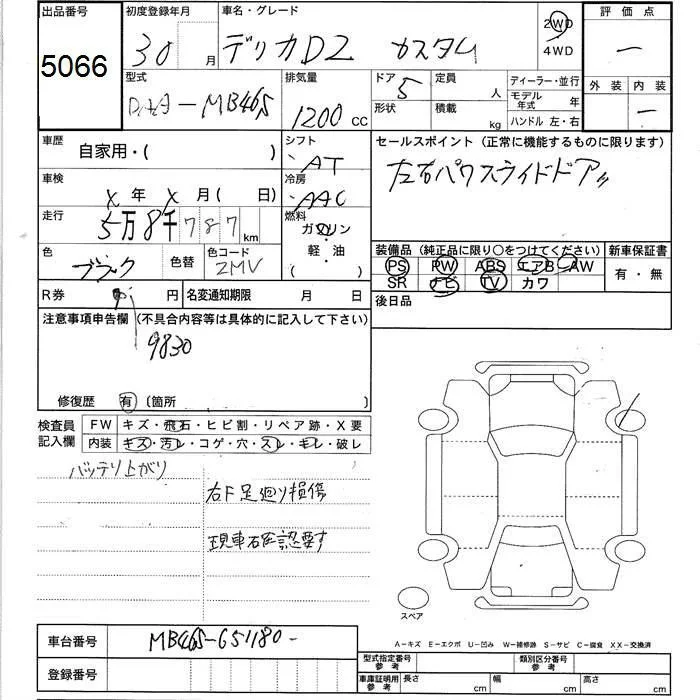 出品番号 初度登録年月 車名・グレード 2WD 評価点
5066 30 月 デリカD2 カスタム 4WD ー
型式 排気量 ドア 5 定員 人 ディーラー・並行 外装 内装
MB46S 1200 cc 形状 積載 kg モデル年式 年 ー
ハンドル 左・右
車歴 自家用・( ) シフト AT セールスポイント (正常に機能するものに限ります)
車検 X 年 X 月( 日) 冷房 AAC 左右パワスライドドア
走行 5万8千787km 燃料 ガソリン・軽油 ( )
色 ブラック 色替 色コード ZMV 装備品 (純正品に限り〇をつけてください) 新車保証書
PS PW ABS エアB AW 有・無
SR ナビ TV カワ
R券 円 名変通知期限 月 日 後日品
注意事項申告欄 (不具合内容等は具体的に記入して下さい)
9830
修復歴 有 (箇所 )
検査員記入欄 FW キズ・飛石・ヒビ割・リペア跡・X要
内装 キズ・汚レ・コゲ・穴・スレ・キレ・破レ
バッテリ上がり
右F足廻り損傷
現車確認要す
スペア
A−キズ E−エクボ U−凹み W−補修跡 S−サビ C−腐食 XX−交換済
車台番号 MB46S-651180-
登録番号
型式指定番号 参考 類別区分番号 参考
車庫証明用 参考 長さ cm 幅 cm 高さ cm